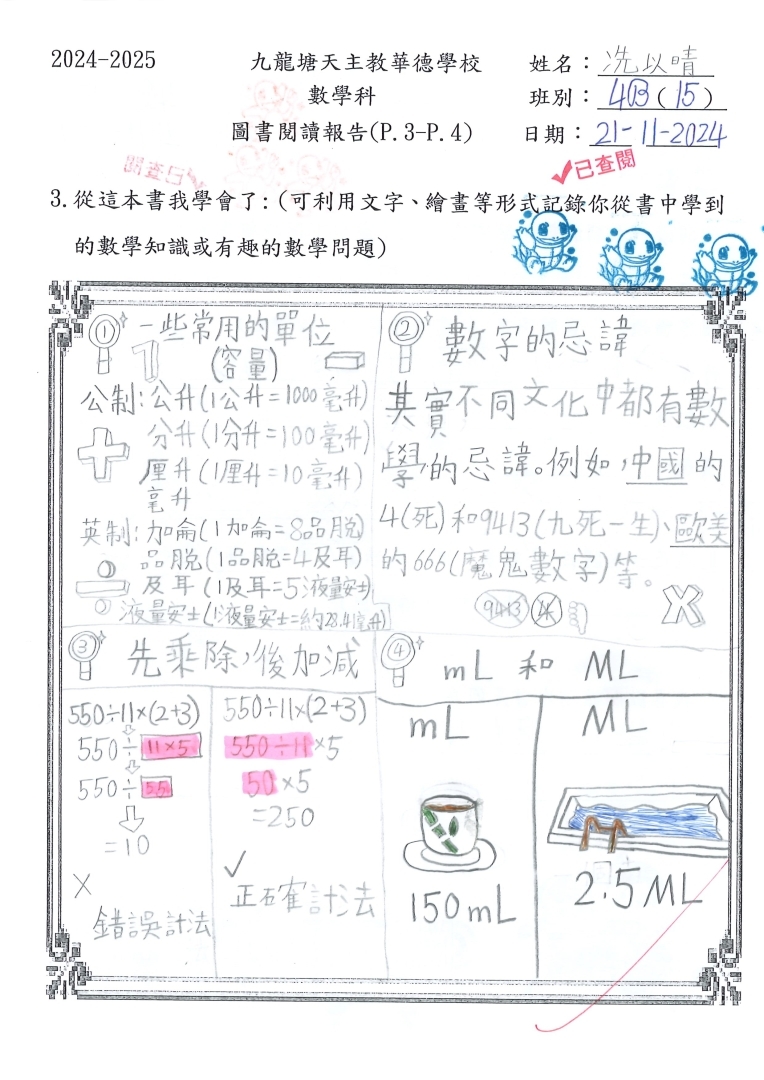 2024-2025
九龍塘天主教華德學校
數學科
圖書閱讀報告(P.3-P.4)
姓名：冼以晴
班別：4B(15)
日期：21-11-2024
已查閱
3. 從這本書我學會了:(可利用文字、繪畫等形式記錄你從書中學到
的數學知識或有趣的數學問題)
① 一些常用的單位
(容量)
公制:公升(1公升=1000毫升)
分升(1分升=100毫升)
厘升(1厘升=10毫升)
毫升
英制:加侖(1加侖=8品脫)
品脫(1品脫=4及耳)
及耳(1及耳=5液量安士)
液量安士(1液量安士=約28.4毫升)
② 數字的忌諱
其實不同文化中都有數
學的忌諱。例如,中國的
4(死)和9413(九死一生)、歐美
的666(魔鬼數字)等。
9413
③ 先乘除,後加減
550÷11×(2+3)
550÷11×5
550÷55
=10
錯誤計法
550÷11×(2+3)
550÷11×5
50×5
=250
正確計法
④ mL 和 ML
mL
150mL
ML
2.5ML